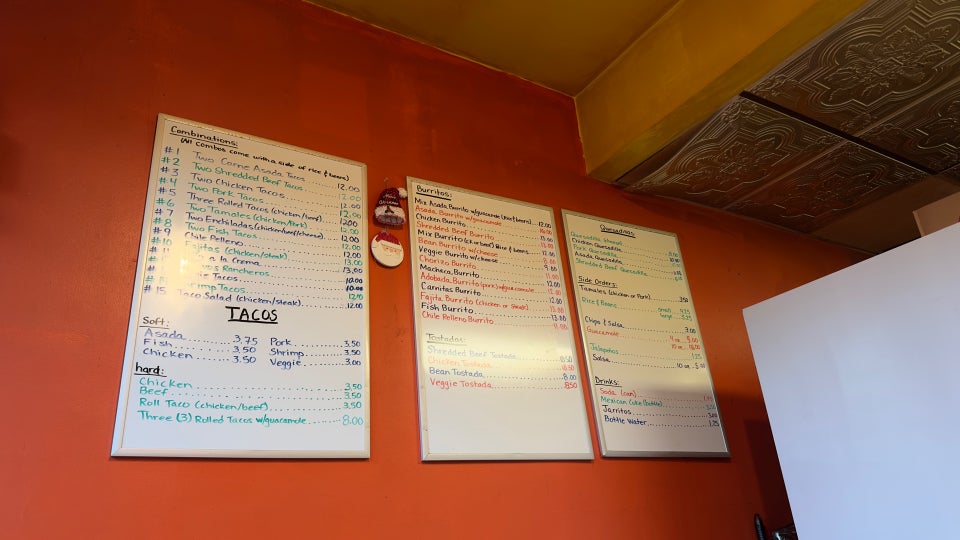 Combinations:
(All combos come with a side of rice & beans)
#1 Two Carne Asada Tacos
#2 Two Shredded Beef Tacos 12.00
#3 Two Chicken Tacos 12.00
#4 Two Pork Tacos 12.00
#5 Three Rolled Tacos (chicken/beef) 12.00
#6 Two Tamales (chicken/Pork) 12.00
#7 Two Enchiladas (chicken/beef/cheese) 12.00
#8 Two Fish Tacos 12.00
#9 Chile Pelleno 12.00
Fajitas (chicken/steak) 13.00
a la Crema 13.00
Rancheros 10.00
Tacos 10.00
Shrimp Tacos 12.00
#15 Taco Salad (chicken/steak) 12.00
TACOS
Soft:
Asada 3.75
Fish 3.50
Chicken 3.50
Pork 3.50
Shrimp 3.50
Veggie 3.00
hard:
Chicken 3.50
Beef 3.50
Roll Taco (chicken/beef) 3.50
Three (3) Rolled Tacos w/guacamole 8.00
Burritos:
Mix Asada Burrito w/guacamole (Rice & beans) 12.00
Asada Burrito w/guacamole
Chicken Burrito
Shredded Beef Burrito
Mix Burrito (ckn/beef) Rice & beans
Bean Burrito w/cheese
Veggie Burrito w/cheese
Chorizo Burrito
Machaca Burrito
Adobada Burrito (pork) w/guacamole
Carnitas Burrito 12.00
Fajita Burrito (chicken or steak) 13.00
Fish Burrito 13.00
Chile Pelleno Burrito
Tostadas:
Shredded Beef Tostada 8.50
Chicken Tostada 8.50
Bean Tostada 8.00
Veggie Tostada 8.50
Quesadillas
Quesadilla
Chicken Quesadilla
Pork Quesadilla
Asada Quesadilla
Shredded Beef Quesadilla
Side Orders:
Tamales (chicken or Pork) 3.50
Rice & Beans
small
large
Chips & Salsa 3.00
Guacamole
4 oz
10 oz
Jalapeños
Salsa
10 oz
Drinks:
Soda (can)
Mexican coke (bottle)
Jarritos
Bottle Water 1.25